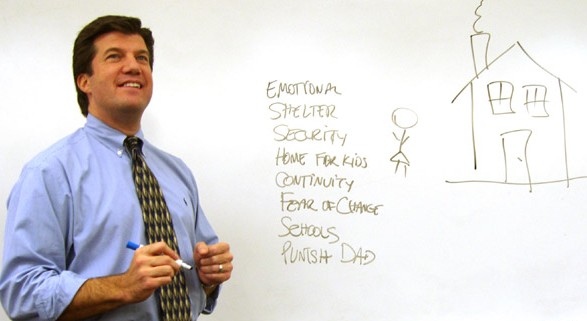 EMOTIONAL
SHELTER
SECURITY
HOME FOR KIDS
CONTINUITY
FEAR OF CHANGE
SCHOOLS
PUNISH DAD